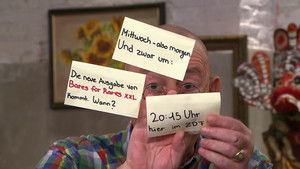 Mittwoch-also morgen
Und zwar um:
Die neue Ausgabe von
Bares für Rares XXL
kommt Wann?
20:15 Uhr
hier im ZDF